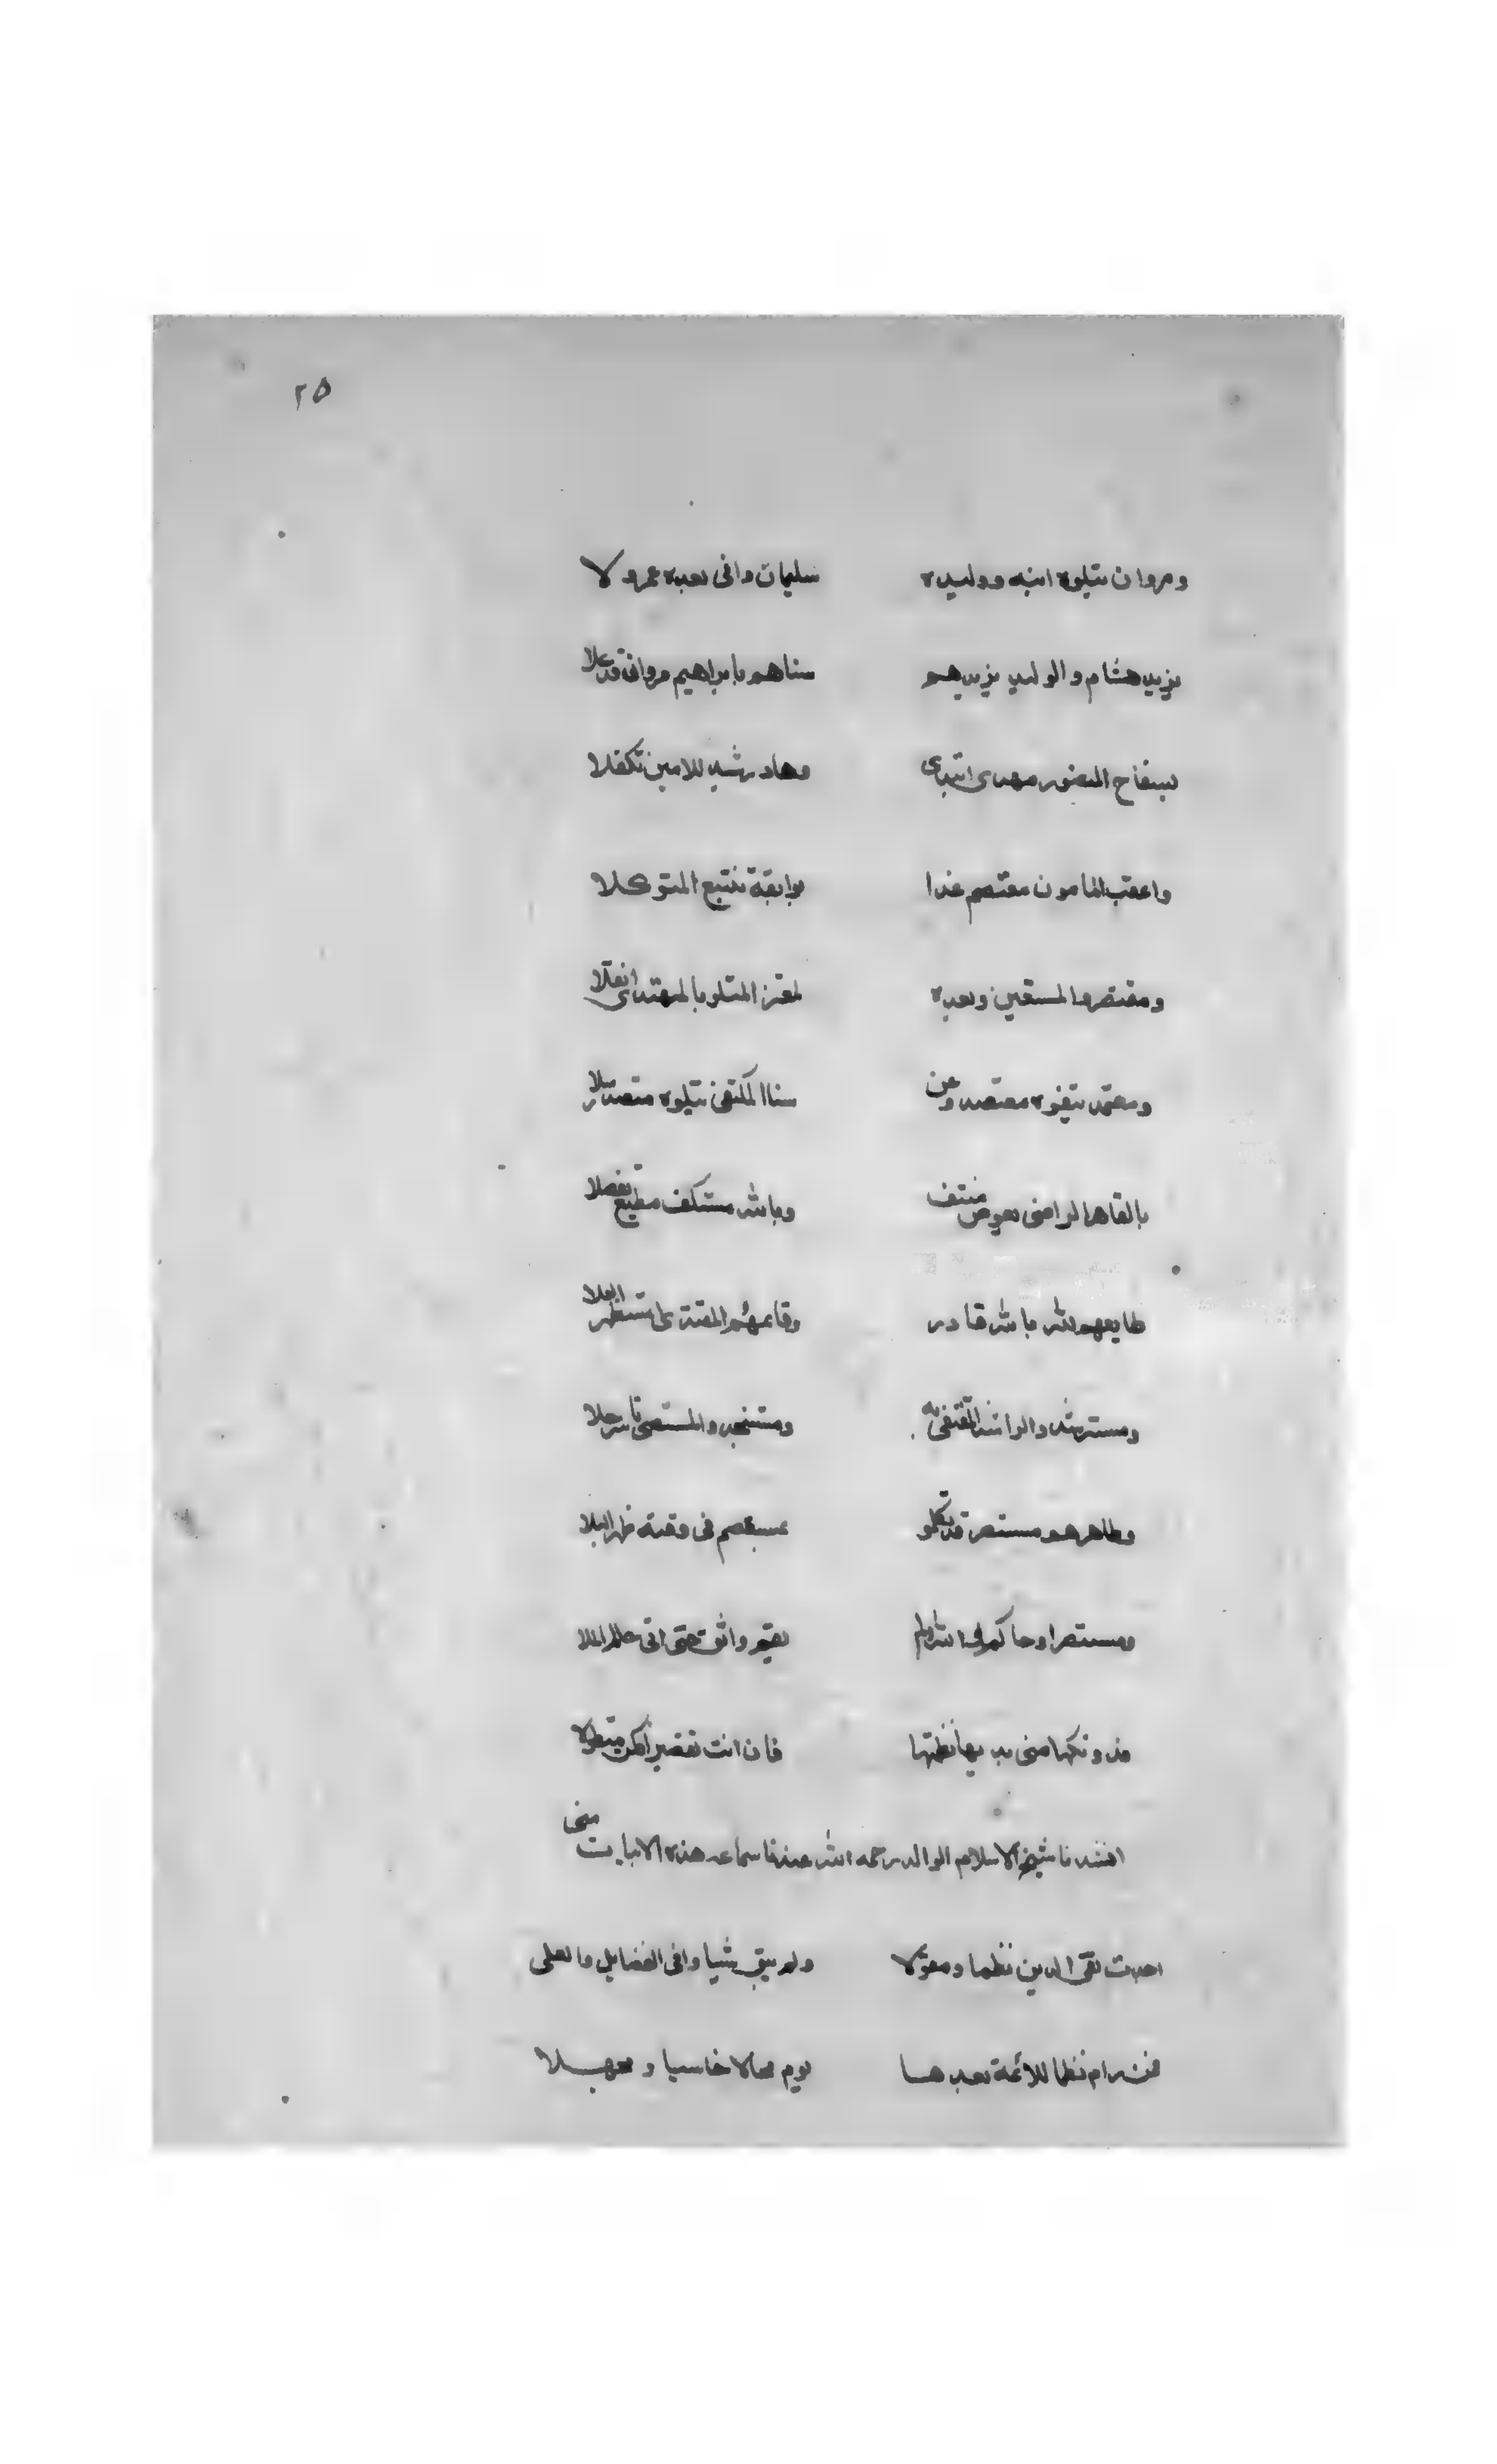 ٢٥
ومروان يتلوه ابنه ووليده سليمان وافى بعده عمر ولا
يزيد هشام والوليد يزيدهم سناهم بابراهيم مروان قد علا
بسفاح المنصور مهدى ابتدى وهاد رشيد للامين تكفلا
واعقب المامون معتصم غدا بواثقه يتبع المتوكلا
ومنتصر والمستعين وبعده لمعتز المتلو بالمهتدى
ومعتمد يقفوه معتضد وعن سنا المكتفى يتلوه مقتدر
بالقاهر الراضى بعوض متقى وبالله مستكف مطيع تفضلا
طايعهم لله بالله قادر وقايمهم المقتدى مستظهر العلا
ومسترشد والراشد المقتفى به ومستنجد والمستضى ناصر
وظاهرهم مستنصر قد بمستعصم فى وقته ظهر البلا
ومستنصر او حاكم واثق حتى اتى
فدونكها منى بديها نظمتها فان انت تقصير
انشدنا شيخ الاسلام الوالد رحمه الله عند سماعه هذه الابيات منى
اجدت تقى الدين نظما ومقولا ولم يبق شيا وافى الفضايل والعلى
فمن رام نظما للائمة بعدها يروم محالا خاسيا